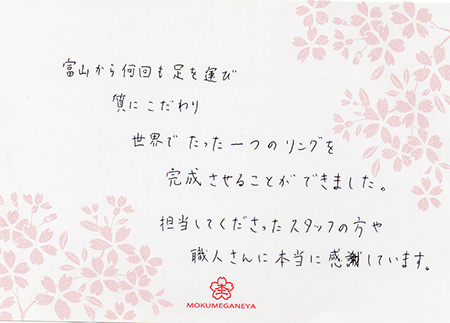 富山から何回も足を運び
質にこだわり
世界でたった一つのリングを
完成させることができました。
担当してくださったスタッフの方や
職人さんに本当に感謝しています。
MOKUMEGANEYA